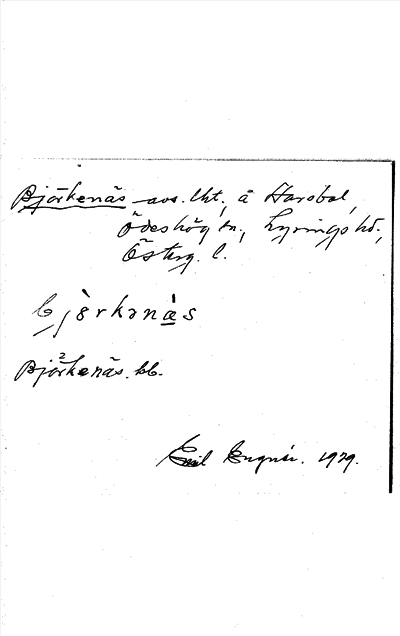 Björkenäs avs. lht, å Harsbol,
Ödeshög sn., Lysings hd.,
Österg. l.
bjö̀rkənæ̀s
Björ²kenäs. kb.
Emil Engnér. 1929.